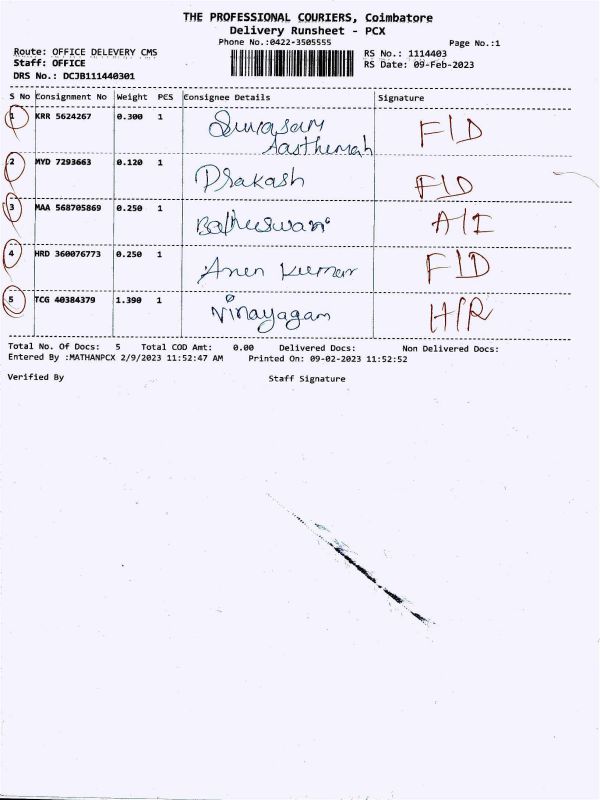 THE PROFESSIONAL COURIERS, Coimbatore
Delivery Runsheet - PCX
Phone No.:0422-3505555
Page No.:1
Route: OFFICE DELEVERY CMS
RS No.: 1114403
Staff: OFFICE
RS Date: 09-Feb-2023
DRS No.: DCJB111440301
S No Consignment No Weight PCS Consignee Details Signature
1 KRR 5624267 0.300 1 F/D
2 MYD 7293663 0.120 1 Prakash F/D
3 MAA 568705869 0.250 1 A/I
4 HRD 360076773 0.250 1 Kumar F/D
5 TCG 40384379 1.390 1 Vinayagam H/R
Total No. Of Docs: 5 Total COD Amt: 0.00 Delivered Docs: Non Delivered Docs:
Entered By :MATHANPCX 2/9/2023 11:52:47 AM Printed On: 09-02-2023 11:52:52
Verified By Staff Signature